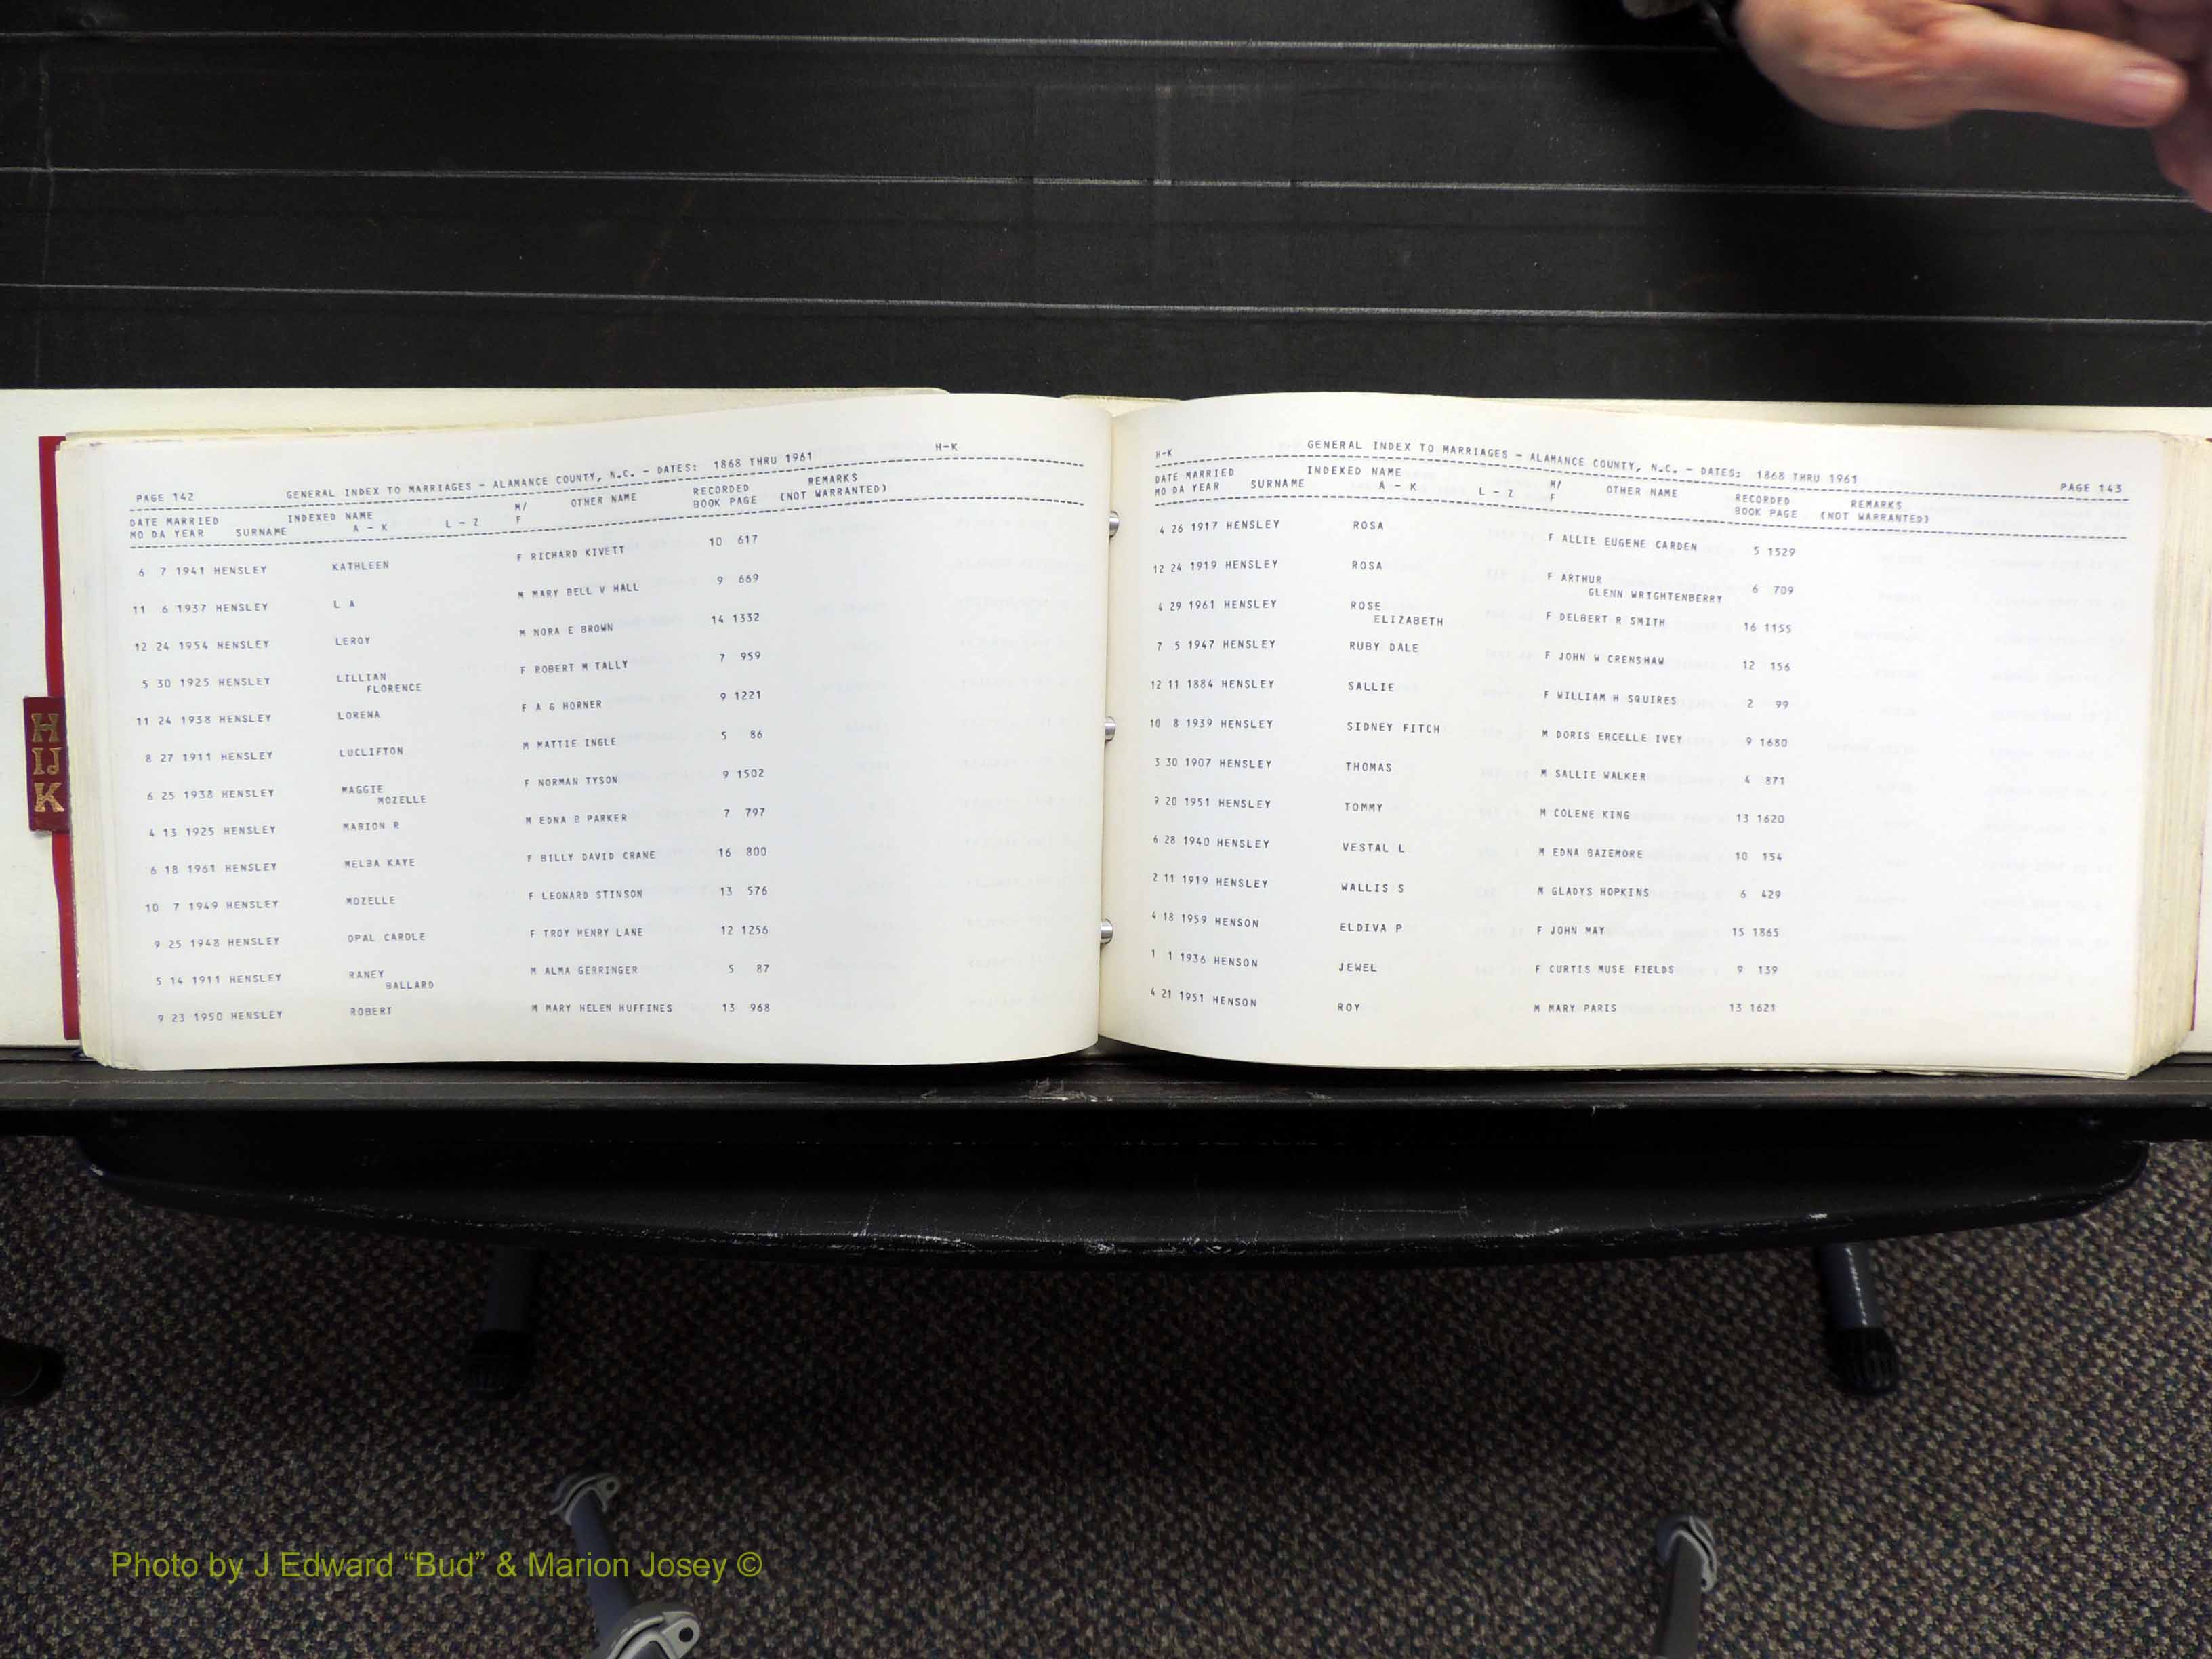 H
IJ
K
PAGE 142 GENERAL INDEX TO MARRIAGES - ALAMANCE COUNTY, N.C. - DATES: 1868 THRU 1961 H-K
DATE MARRIED INDEXED NAME M/ OTHER NAME RECORDED REMARKS
MO DA YEAR SURNAME A - K L - Z F BOOK PAGE (NOT WARRANTED)
6 7 1941 HENSLEY KATHLEEN F RICHARD KIVETT 10 617
11 6 1937 HENSLEY L A M MARY BELL V HALL 9 669
12 24 1954 HENSLEY LEROY M NORA E BROWN 14 1332
5 30 1925 HENSLEY LILLIAN F ROBERT M TALLY 7 959
FLORENCE
11 24 1938 HENSLEY LORENA F A G HORNER 9 1221
8 27 1911 HENSLEY LUCLIFTON M MATTIE INGLE 5 86
6 25 1938 HENSLEY MAGGIE F NORMAN TYSON 9 1502
MOZELLE
4 13 1925 HENSLEY MARION R M EDNA B PARKER 7 797
6 18 1961 HENSLEY MELBA KAYE F BILLY DAVID CRANE 16 800
10 7 1949 HENSLEY MOZELLE F LEONARD STINSON 13 576
9 25 1948 HENSLEY OPAL CAROLE F TROY HENRY LANE 12 1256
5 14 1911 HENSLEY RANEY M ALMA GERRINGER 5 87
BALLARD
9 23 1950 HENSLEY ROBERT M MARY HELEN HUFFINES 13 968
H-K GENERAL INDEX TO MARRIAGES - ALAMANCE COUNTY, N.C. - DATES: 1868 THRU 1961 PAGE 143
DATE MARRIED INDEXED NAME M/ OTHER NAME RECORDED REMARKS
MO DA YEAR SURNAME A - K L - Z F BOOK PAGE (NOT WARRANTED)
4 26 1917 HENSLEY ROSA F ALLIE EUGENE CARDEN 5 1529
12 24 1919 HENSLEY ROSA F ARTHUR 6 709
GLENN WRIGHTENBERRY
4 29 1961 HENSLEY ROSE F DELBERT R SMITH 16 1155
ELIZABETH
7 5 1947 HENSLEY RUBY DALE F JOHN W CRENSHAW 12 156
12 11 1884 HENSLEY SALLIE F WILLIAM H SQUIRES 2 99
10 8 1939 HENSLEY SIDNEY FITCH M DORIS ERCELLE IVEY 9 1680
3 30 1907 HENSLEY THOMAS M SALLIE WALKER 4 871
9 20 1951 HENSLEY TOMMY M COLENE KING 13 1620
6 28 1940 HENSLEY VESTAL L M EDNA BAZEMORE 10 154
2 11 1919 HENSLEY WALLIS S M GLADYS HOPKINS 6 429
4 18 1959 HENSON ELDIVA P F JOHN MAY 15 1865
1 1 1936 HENSON JEWEL F CURTIS MUSE FIELDS 9 139
4 21 1951 HENSON ROY M MARY PARIS 13 1621
Photo by J Edward “Bud” & Marion Josey ©